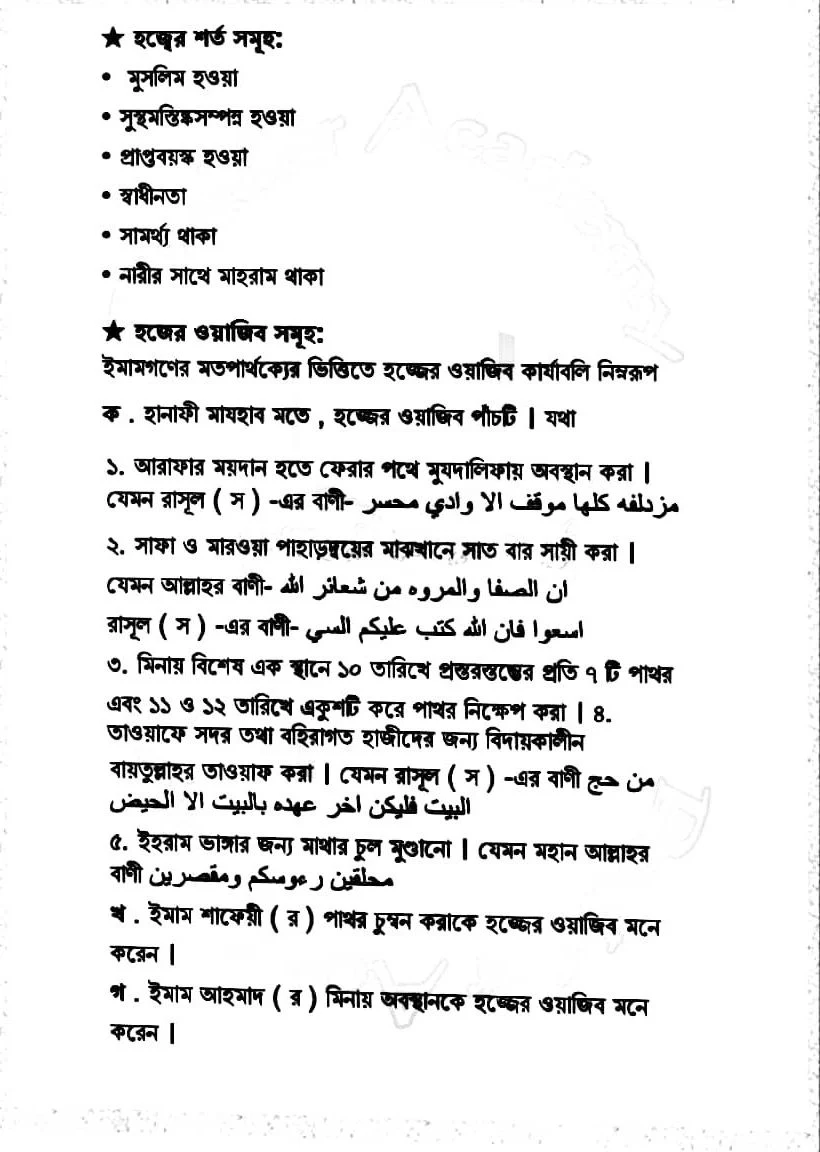 ★ হজ্বের শর্ত সমূহ:
• মুসলিম হওয়া
• সুস্থমস্তিষ্কসম্পন্ন হওয়া
• প্রাপ্তবয়স্ক হওয়া
• স্বাধীনতা
• সামর্থ্য থাকা
• নারীর সাথে মাহরাম থাকা
★ হজের ওয়াজিব সমূহ:
ইমামগণের মতপার্থক্যের ভিত্তিতে হজ্জের ওয়াজিব কার্যাবলি নিম্নরূপ
ক . হানাফী মাযহাব মতে , হজ্জের ওয়াজিব পাঁচটি | যথা
১. আরাফার ময়দান হতে ফেরার পথে মুযদালিফায় অবস্থান করা |
যেমন রাসূল ( স ) -এর বাণী- مزدلفه كلها موقف الا وادي محسر
২. সাফা ও মারওয়া পাহাড়দ্বয়ের মাঝখানে সাত বার সায়ী করা |
যেমন আল্লাহর বাণী- ان الصفا والمروه من شعائر الله
রাসূল ( স ) -এর বাণী- اسعوا فان الله كتب عليكم السي
৩. মিনায় বিশেষ এক স্থানে ১০ তারিখে প্রস্তরস্তম্ভের প্রতি ৭ টি পাথর
এবং ১১ ও ১২ তারিখে একুশটি করে পাথর নিক্ষেপ করা | ৪.
তাওয়াফে সদর তথা বহিরাগত হাজীদের জন্য বিদায়কালীন
বায়তুল্লাহর তাওয়াফ করা | যেমন রাসূল ( স ) -এর বাণী من حج
البيت فليكن اخر عهده بالبيت الا الحيض
৫. ইহরাম ভাঙ্গার জন্য মাথার চুল মুণ্ডানো | যেমন মহান আল্লাহর
বাণী محلقين رءوسكم ومقصرين
খ . ইমাম শাফেয়ী ( র ) পাথর চুম্বন করাকে হজ্জের ওয়াজিব মনে
করেন |
গ . ইমাম আহমাদ ( র ) মিনায় অবস্থানকে হজ্জের ওয়াজিব মনে
করেন |